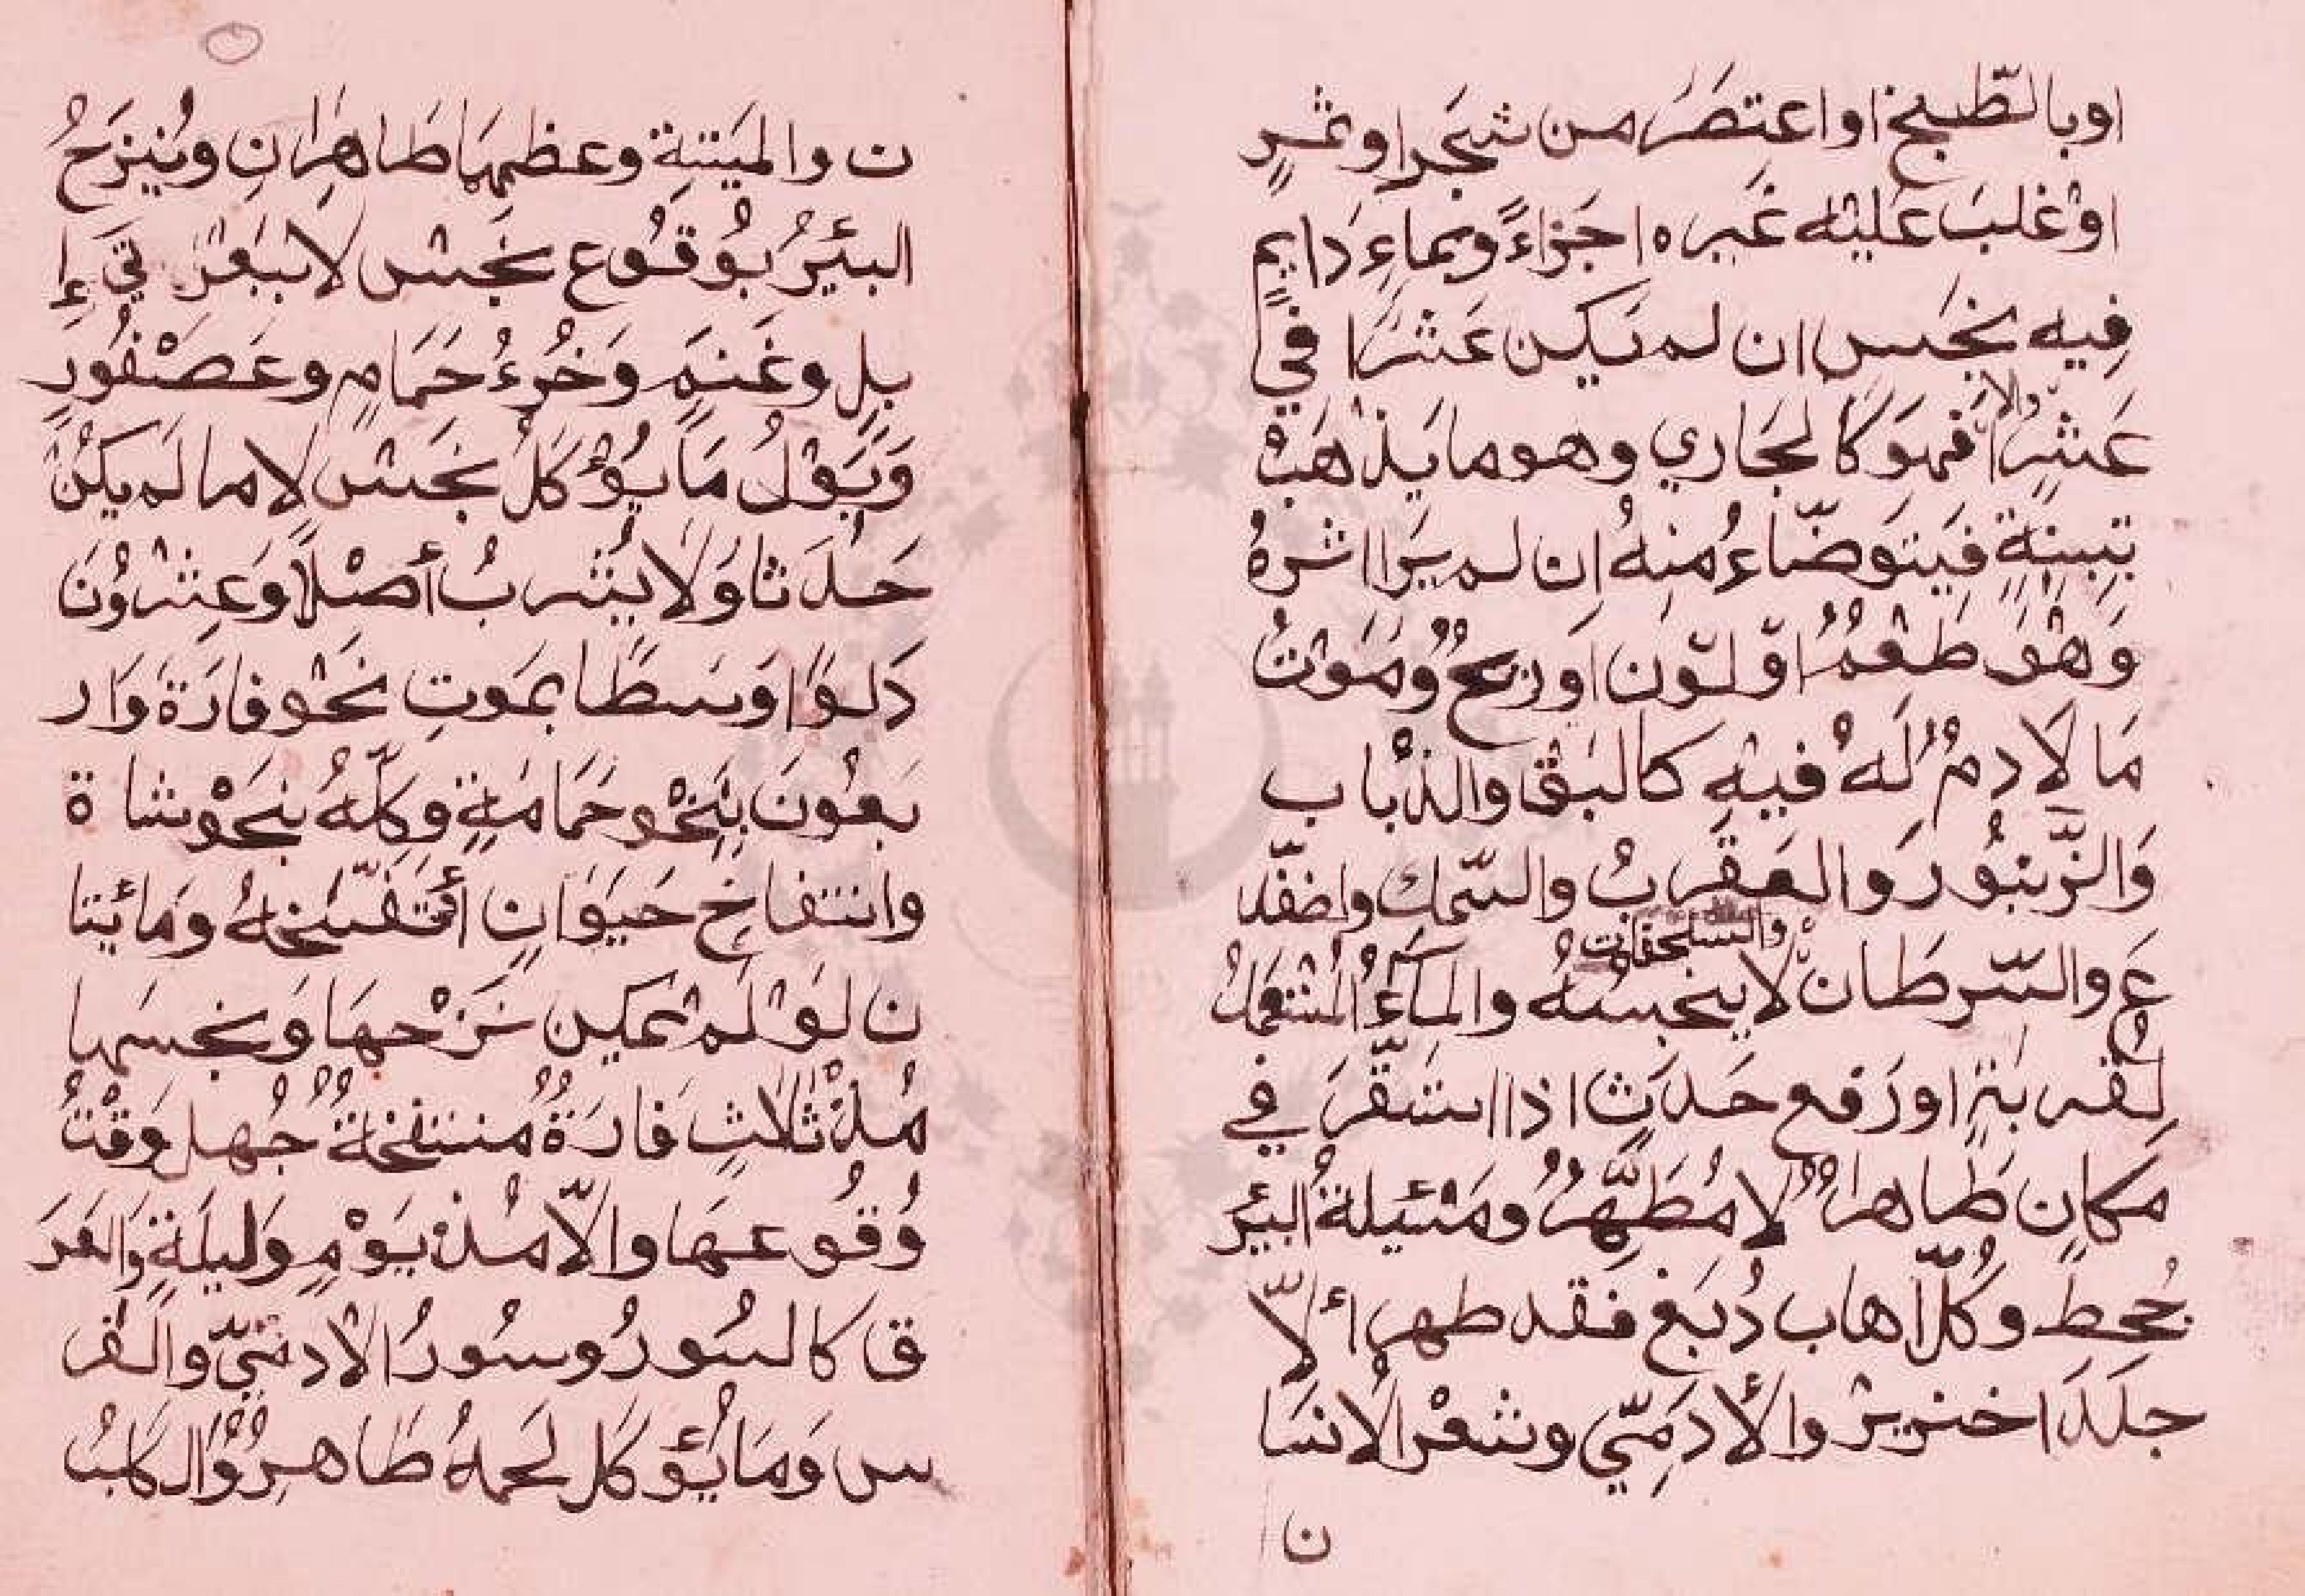 اوبالطّبخ اواعتِصَرَ من شَجَرٍ اوثمرٍ
اوْغلبَ عَليْه غَيره اجَزاءً وبماءٍ دَايمٍ
فِيه نجَس ان لم يَكن عَشْرًا في
عَشْرٍ والا فهوَ كَالجَاري وهو ما يذْهَبْ
بتِبنةٍ فيَتوَضّاءُ مُنهُ اِن لم يَرَا اثرهُ
وَهْوَ طَعْمٌ اوْ لوْن اوريحٌ ومَوْتُ
مَا لَادمٌ لَهُ فيْهِ كالبَقْ والذبْاب
وَالزّنبُور والعَقرَبُ والسّمك واضفّد
عَ والسّرطان والسلحفات لا ينجسهُ والمآءُ المُسْتعَملُ
لِقُربَةٍ اورَفع حَدَثٍ اذا استَقّرَ في
مَكانٍ طَاهرٌ لا مُطَهِّرٌ ومَسْئيلةُ البئر
جُحِطٍ وكُلّ اهاب دُبَغ فقد طهر أَلّا
جلَدَ اخنزيرْ والأدَمِيّ وشعْر الانسَا
ن
ن والميَتةِ وعظمهَا طَاهِرَانِ ويُنزَحُ
البئيرُ بوُقُوع نَجَسْ لا ببَعْرَتي اِ
بِلٍ وغَنمٍَ وَخُرءُ حَمَامٍ وعَصْفُورٍ
وَبَوْلُ مَا يُوْكَلُ نجَسْ لا ما لَم يكُنْ
حَدَثا وَلَا يُشربُ أصْلاً وَعِشْرُونَ
دَلوًا وَسَطًا بمَوتِ نَحْو فارَة وَار
بَعُونَ بِنَحْو حَمَامَةٍ وكِلّهُ بنَحْوشاة
وانتفاخِ حَيَوَانٍ أَتَفَسّخهُ ومَائيتا
ن لوْلَمْ يمكن نَزْحهَا وَنجسَها
مُذْ ثلاثٍ فارَةٌ مُنتفخةٌ جُهل وَقْتُ
وُقُوعهَا والّا مُذْ يَوْمٍ وَليلَةٍ وَالعَرَ
ق كالسُور وسُورُ الأدَمَيّ والفَر
س وَمَا يُؤكَل لَحمهُ طَاهرٌ وَالكَلبُ